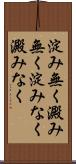 淀み無く澱み
無く淀みなく
澱みなく